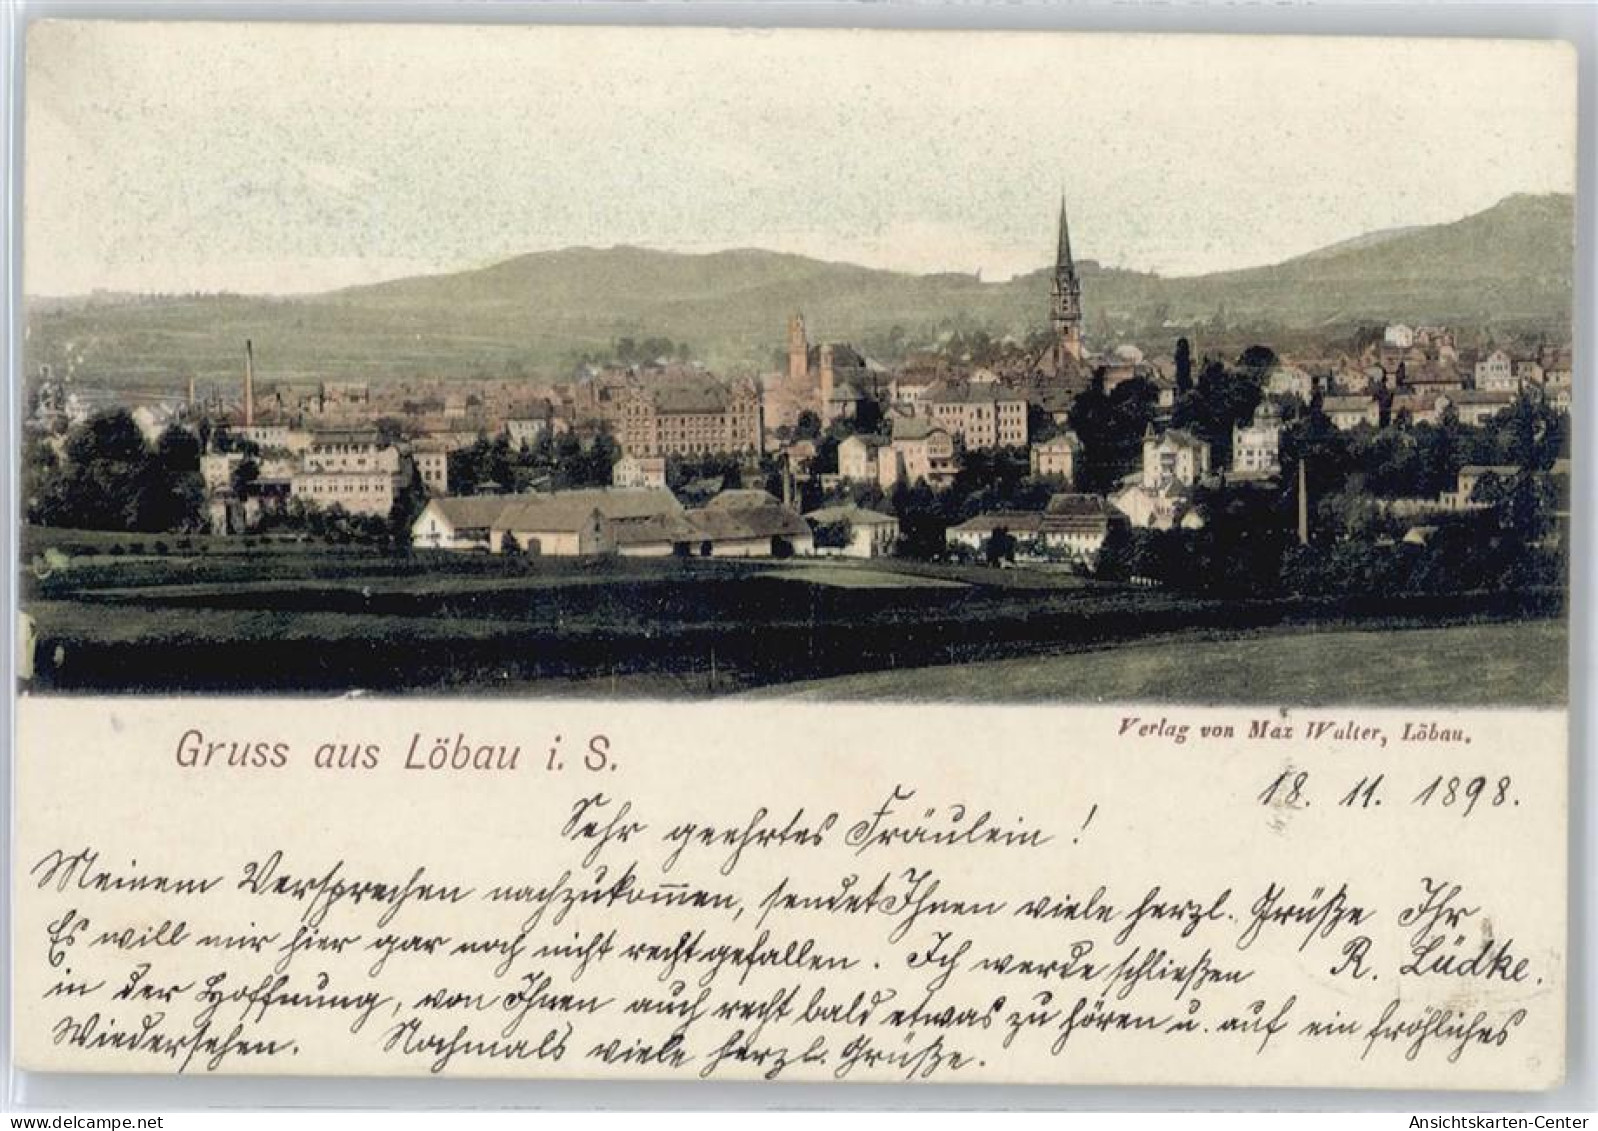 Gruss aus Löbau i. S.
Verlag von Max Walter, Löbau.
18. 11. 1898.
Sehr geehrtes Fräulein!
Meinem Versprechen nachzukom̅en, sendet Ihnen viele herzl. Grüße Ihr
R. Lüdke.
Es will mir hier gar noch nicht recht gefallen. Ich werde schließen
in der Hoffnung, von Ihnen auch recht bald etwas zu hören u. auf ein fröhliches
Wiedersehen. Nochmals viele herzl. Grüße.
Ansichtskarten-Center
delcampe.net